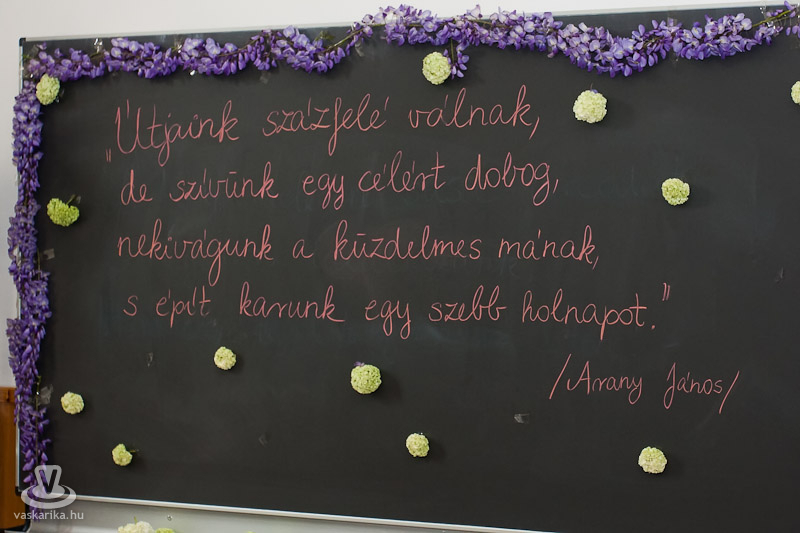 „Útjaink százfelé válnak,
de szívünk egy célért dobog,
nekivágunk a küzdelmes mának,
s épít karunk egy szebb holnapot."
/Arany János/
V
vaskarika.hu